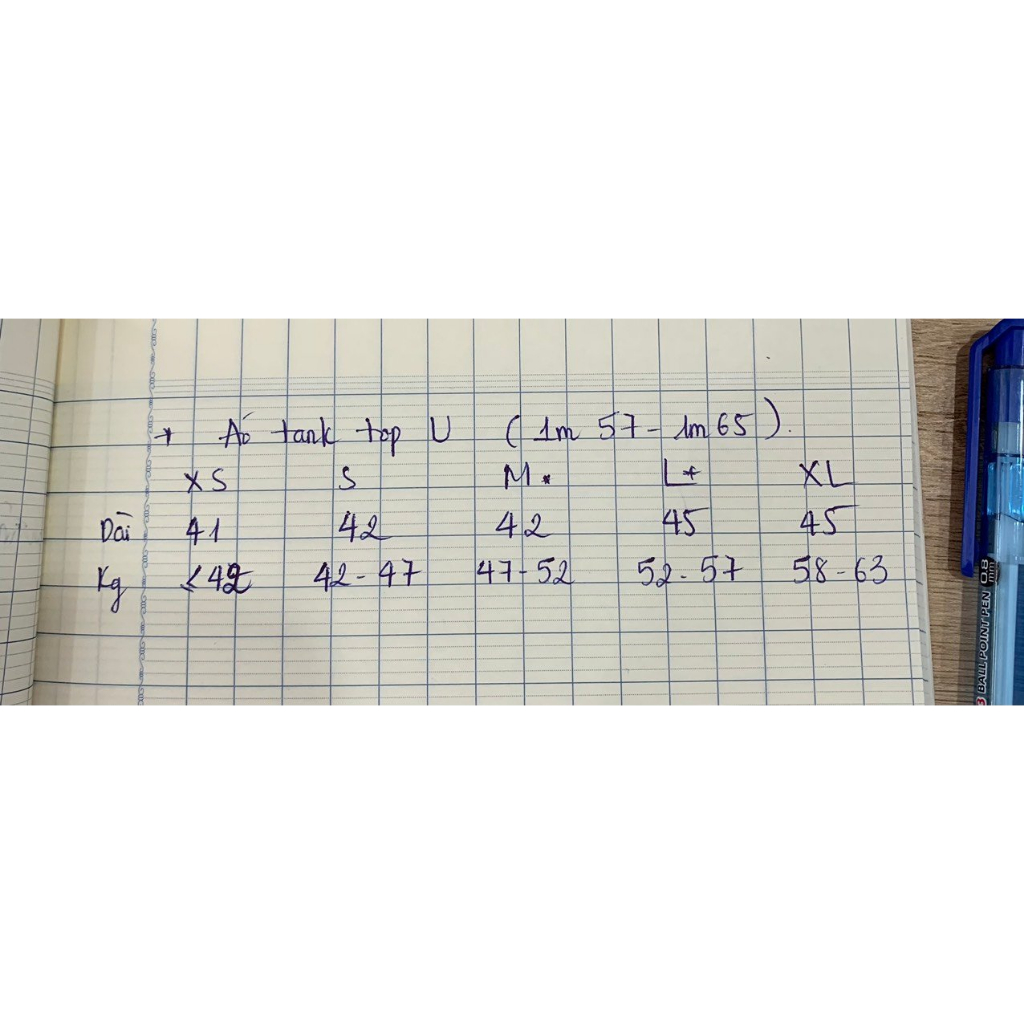 + Áo tank top U (1m 57 - 1m 65).
XS S M * L + XL
Dài 41 42 42 45 45
Kg <42 42-47 47-52 52-57 58-63
BALL POINT PEN 0.8 mm